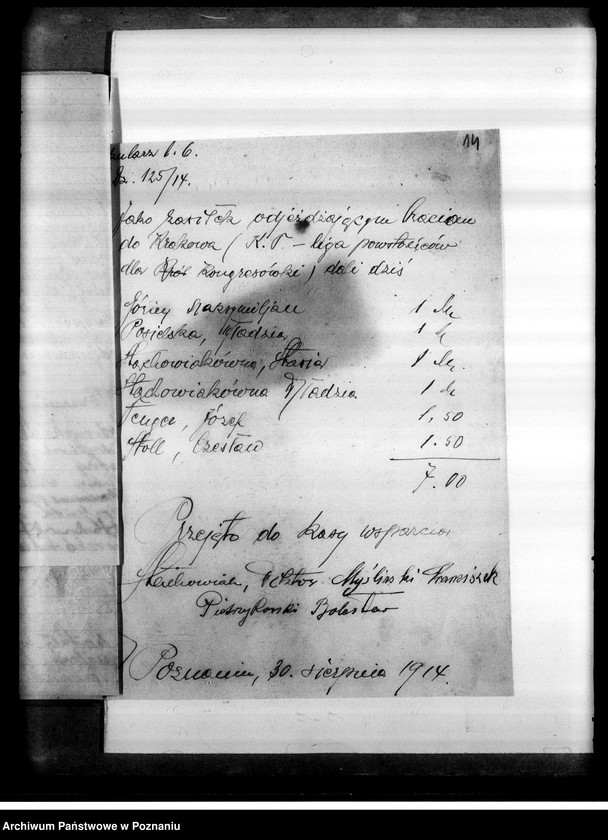 14
l. 6.
125/14.
Jako zasiłek odjeżdżającym braciom
do Krakowa (K. T. – liga powstańców
dla Kongresówki) dali dziś
Maksymiljan 1 M
Władzia 1 M
Stachowiakówna, Maria 1 M.
Stachowiakówna Władzia 1 M
Józef 1,50
Stoll, Czesław 1.50
7.00
Przejęto do kasy wsparcia
Stachowiak, Wiktor Myśliński Franciszek
Pietrzykowski Bolesław
Poznaniu, 30. sierpnia 1914.
Archiwum Państwowe w Poznaniu